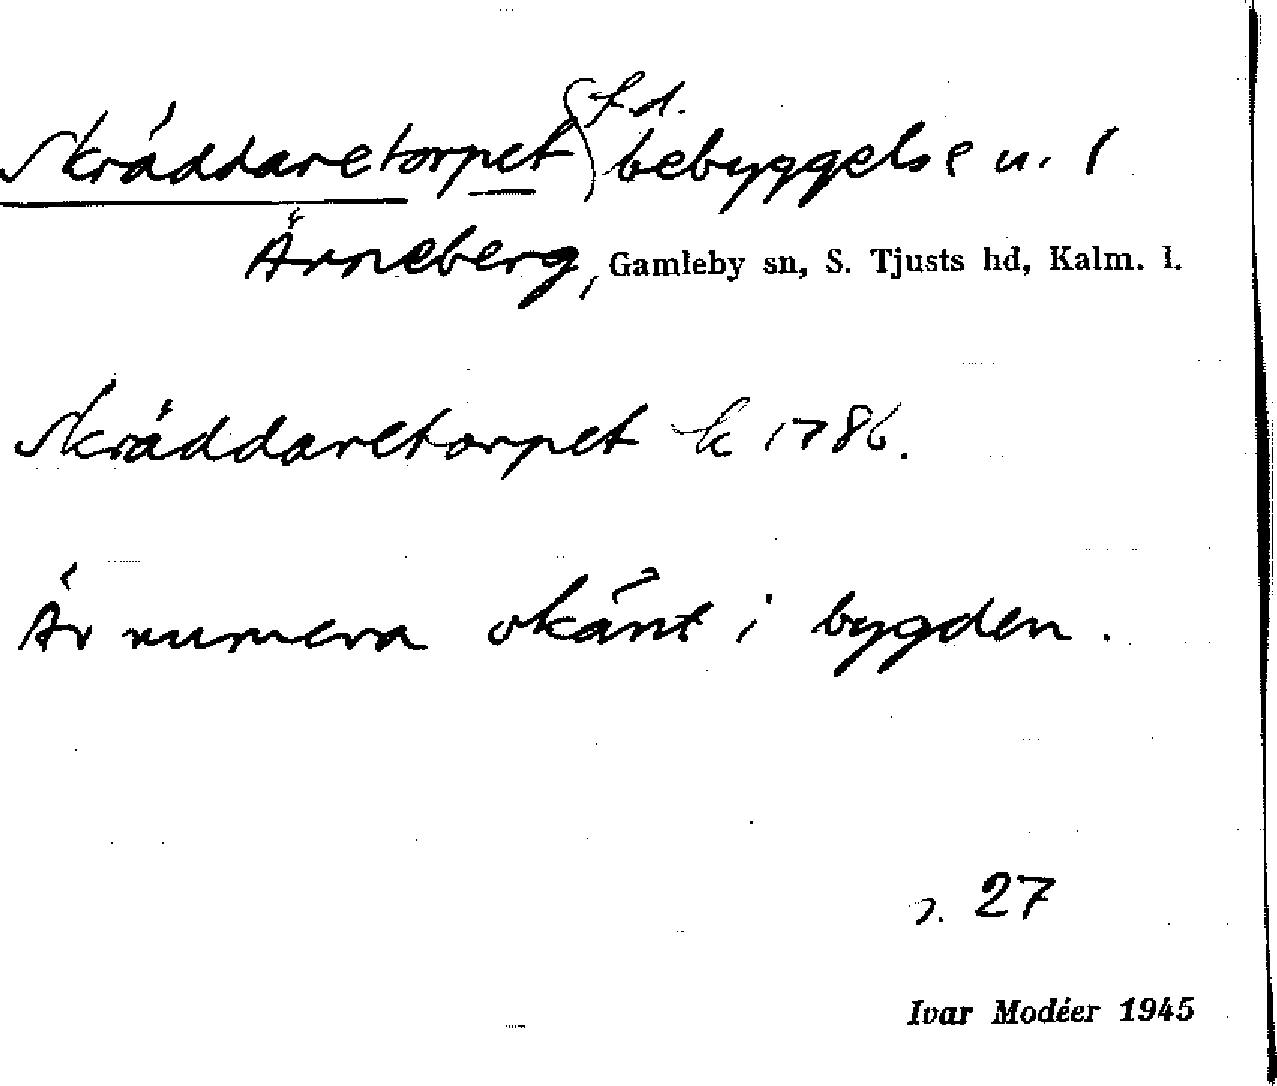 Skräddaretorpet, f.d. bebyggelse u. 1
Ärneberg, Gamleby sn, S. Tjusts hd, Kalm. l.
Skräddaretorpet k 1786.
Är numera okänt i bygden.
s. 27
Ivar Modéer 1945